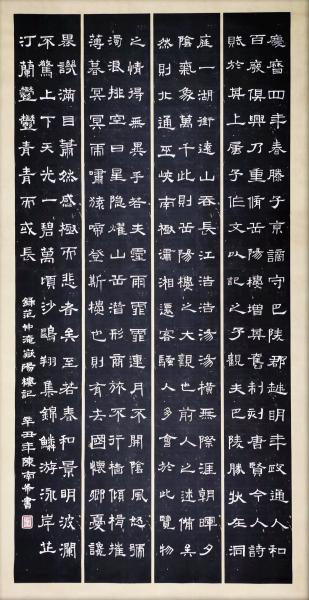 慶曆四年春滕子京謫守巴陵郡越明年政通人和
百廢俱興乃重脩岳陽樓增其舊制刻唐賢今人詩
賦於其上屬予作文以記之予觀夫巴陵勝狀在洞
庭一湖銜遠山吞長江浩浩湯湯橫無際涯朝暉夕
陰氣象萬千此則岳陽樓之大觀也前人之述備矣
然則北通巫峽南極瀟湘遷客騷人多會于此覽物
之情得無異乎若夫霪雨霏霏連月不開陰風怒號
濁浪排空日星隱耀山岳潛形商旅不行檣傾楫摧
薄暮冥冥虎嘯猿啼登斯樓也則有去國懷鄉憂讒
畏譏滿目蕭然感極而悲者矣至若春和景明波瀾
不驚上下天光一碧萬頃沙鷗翔集錦鱗游泳岸芷
汀蘭鬱鬱青青而或長
錄范仲淹嶽陽樓記 辛丑年陳南書